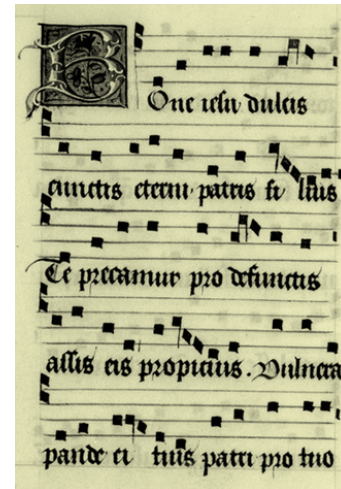 Bone iesu dulcis
cunctis eterni patris fi lius
Te precamur pro defunctis
assis eis propicius. Vulnera
pande ei tuis patri pro tuo